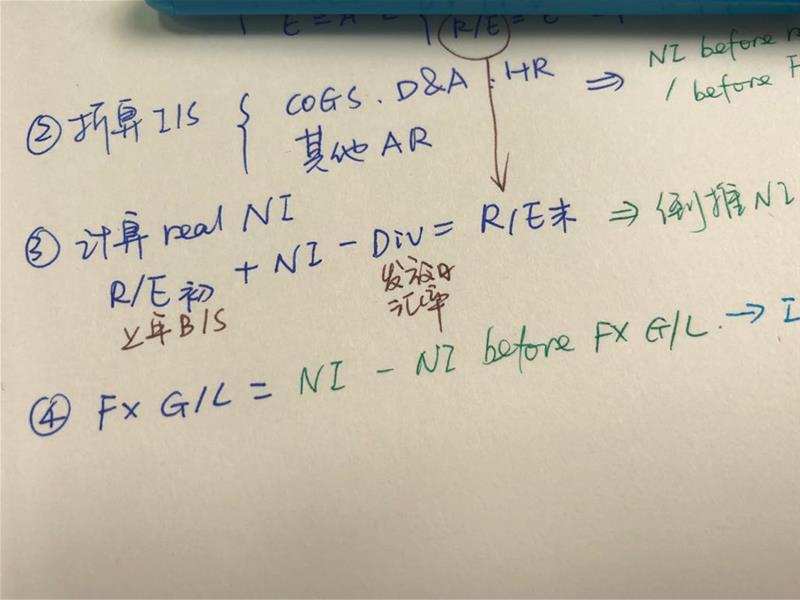 E = A - { R/E =
② 折算 I/S { COGS. D&A. HR ⇒ NI before
其他 AR / before F
③ 计算 real NI
R/E初 + NI - Div = R/E末 ⇒ 倒推 NI
上年B/S 发放日
汇率
④ FX G/L = NI - NI before FX G/L. → I